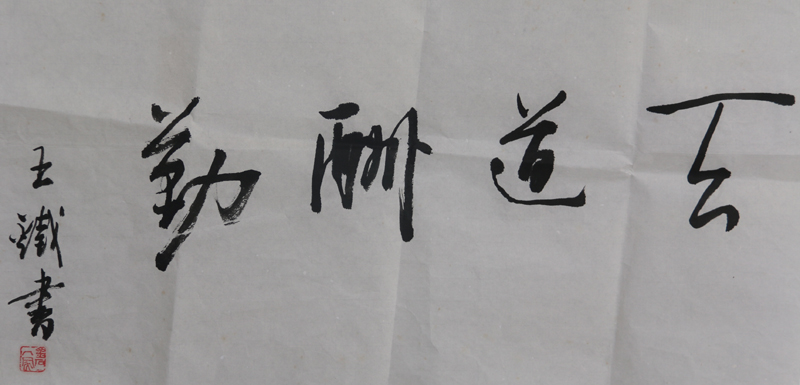 天道酬勤
王鐵書